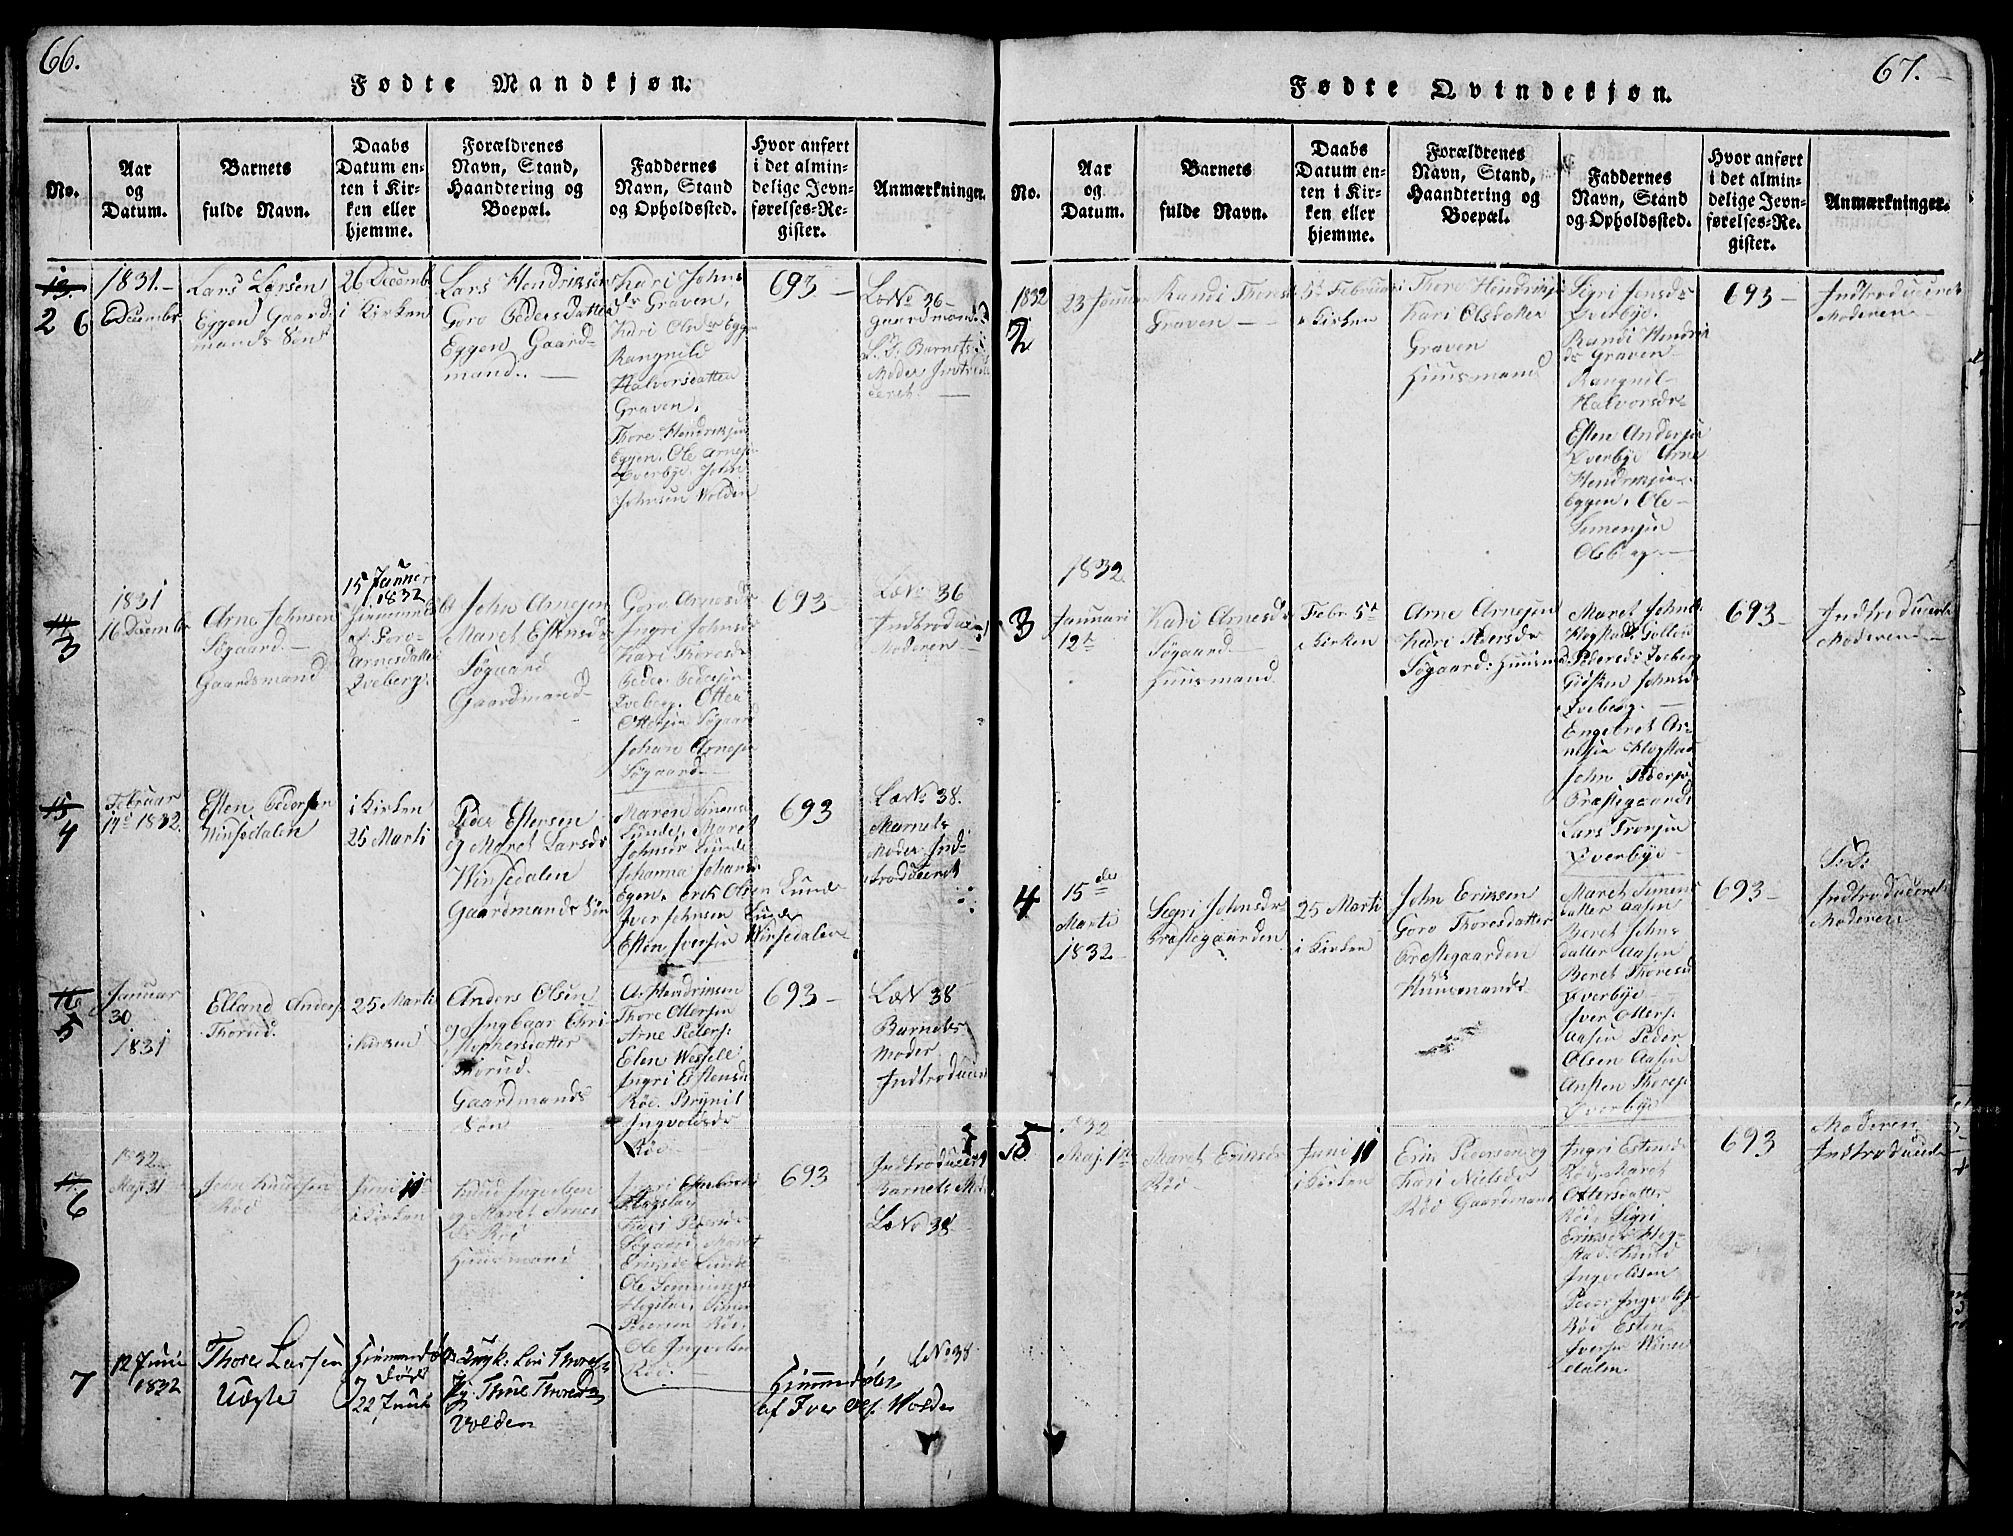 66.
Fødte Mandkjøn.
No.
Aar
og
Datum.
Barnets
fulde Navn.
Daabs
Datum en-
ten i Kir-
ken eller
hjemme.
Forældrenes
Navn, Stand,
Haandtering og
Boepæl.
Faddernes
Navn, Stand
og Opholdssted.
Hvor anført
i det almin-
delige Jevn-
førelses-Re-
gister.
Anmærkninger.
13.
2
1831.-
6 Decembr
Lars Larsen
Eggen Gaard-
mands Søn
26 Decembr
i Kirken
Lars Hendriksen
Goro Pedersdatter
Eggen Gaard-
mand. -
Kari Johns
dr Graven,
Kari Olsdr Eggen
Rangnild
Halvorsdatter
Graven,
Thore Hendriksen
Eggen. Ole Arnesen
Øverbye. John
Johnsen Volden
693 -
LøNo 36 -
Gaardmand
S.D. Barnets
Moder Introdu
ceret. -
14
3
1831
16 Decembr
Arne Johnsen
Søgaard -
Gaardsmand
15 Januer
1832
Hiemmedøbt
af Goro
Arnesdatter
Øveberg.
John Arnesen
Maret Estensdr
Søgaard
Gaardmand
Goro Arnesdr
Ingri Johnsdr
Kari Thoresdr
Peder Pedersen
Øveberg. Otter
Ottersen Søgaard
Johan Arnesen
Søgaard -
693 -
LøNo 36
Indtroduceret
Moderen -
15
4
Februar
14de 1832.
Esten Pedersen
Winsedalen
i Kirken
25 Marti
Peder Estersen
og Maret Larsdr
Winsedalen
Gaardmands Søn
Maren Simensd
Lunde, Maret
Johnsdr Lunde
Johanna Johansdr
Egen, Erik Olsen Lunde
Iver Johnsen Lunde
Esten Iversen Winsedalen
693
LøNo 38.
Barnets
Moder Ind-
troduceret
16
5
Januar
30
1831
Elland Anders.
Thorud.
25 Marti
i Kirken
Anders Olsen
og Ingbaar Chri
stophersdatter
Thorud.
Gaardmands
Søn
A. Hendriksen
Thore Ottersen
Arne Peders.
Elen Wessell
Ingri Estensd
Röe. Brynil
Ingvoldsdr
Röe -
693 -
LøN 38
Barnets
Moder
Indtroduceret
17
6
1832
Maji 31
Joen Knudsen
Röe
Juni 11
i Kirken
Knud Ingvolsen
og Maret Arnes
dr Röe
Huusmand
Kari Pedersdr
Søgaard. Maret
Eriksdr Lunde
Ole Simen
Pedersen Röe,
Ole Ingvolsen
Röe. -
693
Indtroduceret
Barnets Mod.
LøNo 38
7
12 Juni
1832
Thore Larsen
Hiemmedøbt
døde
22 Juni
Volden
Hiemmedøbt
af Iver Ols. Wolden
LNo 38
67.
Fødte Qvindekjøn.
No.
Aar
og
Datum.
Barnets
fulde Navn.
Daabs
Datum en-
ten i Kir-
ken eller
hjemme.
Forældrenes
Navn, Stand,
Haandtering og
Boepæl.
Faddernes
Navn, Stand
og Opholdssted.
Hvor anført
i det almin-
delige Jevn-
førelses-Re-
gister.
Anmærkninger.
1832
2
23 Januar
Randi Thoresdr
Graven -
5te Februari
i Kirken
Thore Hendriksen
Kari Olsdatter
Graven
Huusmand
Sigri Jensdr
Øverbye.
Randi Hendrik
dr Graven
Rangnil
Halvorsdr
Esten Andersen
Øverbye Arne
Hendriksen
Eggen. Ole
Simensen
693 -
Indtroduceret
Moderen -
1832
3
Januari
12te
Kari Arnesdr
Søgaard
Huusmand
Febr. 5te
i Kirken
Arne Arnesen
Kari Iversdr
Søgaard. Huusmd
Maret Johnsd
Hogstad. Gollou
Pedersdr Øveberg
Gidsken Johnsd
Øveberg. -
Engebret Ar-
nesen Hogstad
John Pedersen
Præstegaard
Lars Tronsen
Øverbye -
693 -
Indtroduceret
Moderen -
4
15de
Marti
1832
Segri Johnsdr
Præstegaarden
25 Marti
i Kirken
John Eriksen
Goro Thoresdatter
Præstegaarden
Huusmands
Maret Simens
datter Aasen
Beret Johns
datter Aasen
Beret Thoresd
Øverbye
Iver Otters.
Aasen Peder
Olsen Aasen
Austen Thores.
Øverbye
693 -
S.D.
Indtroduceret
Moderen
5
1832
Maj. 1ste
Maret Eriksdr
Röe
Juni 11
i Kirken
Erik Pedersen og
Kari Nielsdr
Röe Gaardmand
Ingri Estensd
Röe, Maret
Ottersdatter
Röe, Sigri
Eriksdr Hog-
stad. Knud
Ingvolsen
Peder Ingvols.
Röe Esten
Iversen Winse-
dalen.
693
Moderen
Indtroduceret